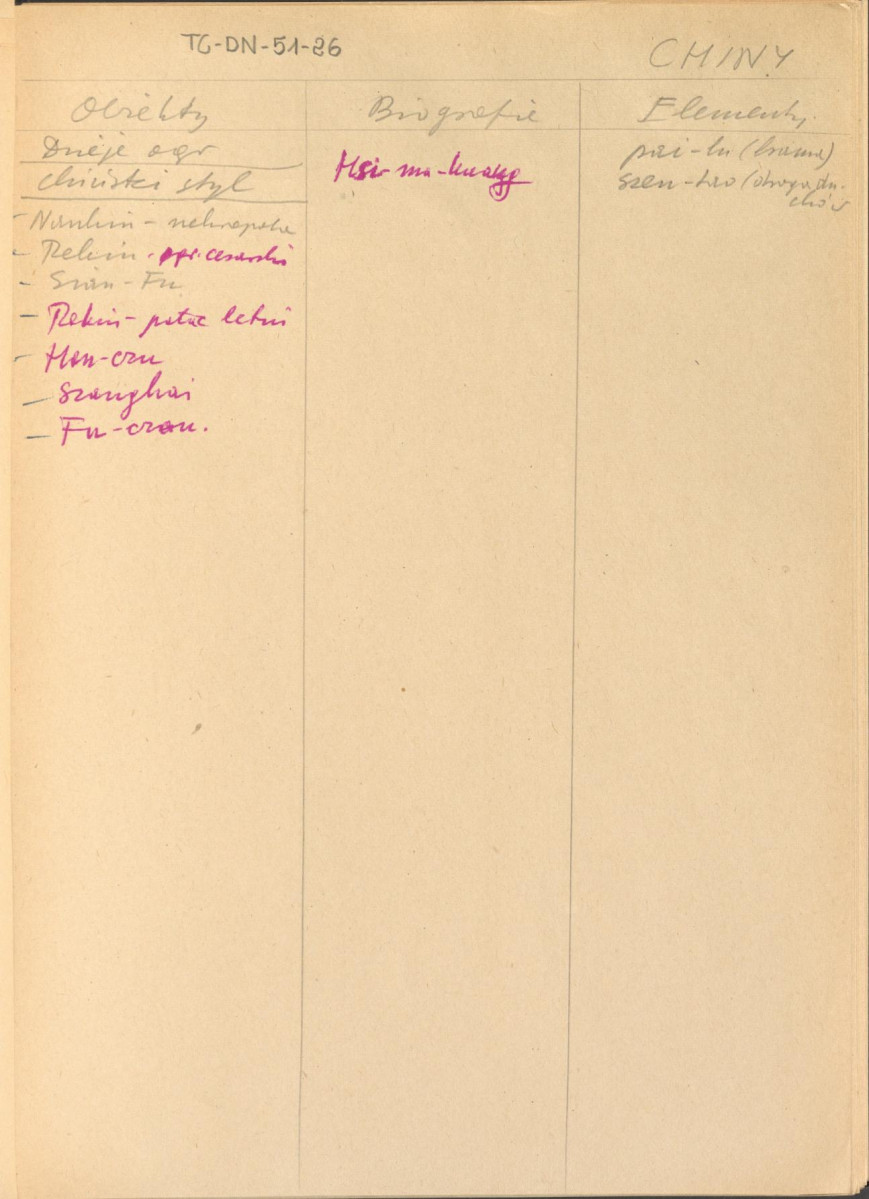 TG-DN-51-26
CHINY
Obiekty
Dzieje ogr
chiński styl
– Nankin – nekropola
– Pekin – ogr. cesarski
– Sian-Fu
– Pekin – pałac letni
– Han-czu
– Szanghai
– Fu-czou.
Biografie
Hsi-ma-kuang
Elementy.
pai-lu (brama)
szen-tao (droga du-
chów